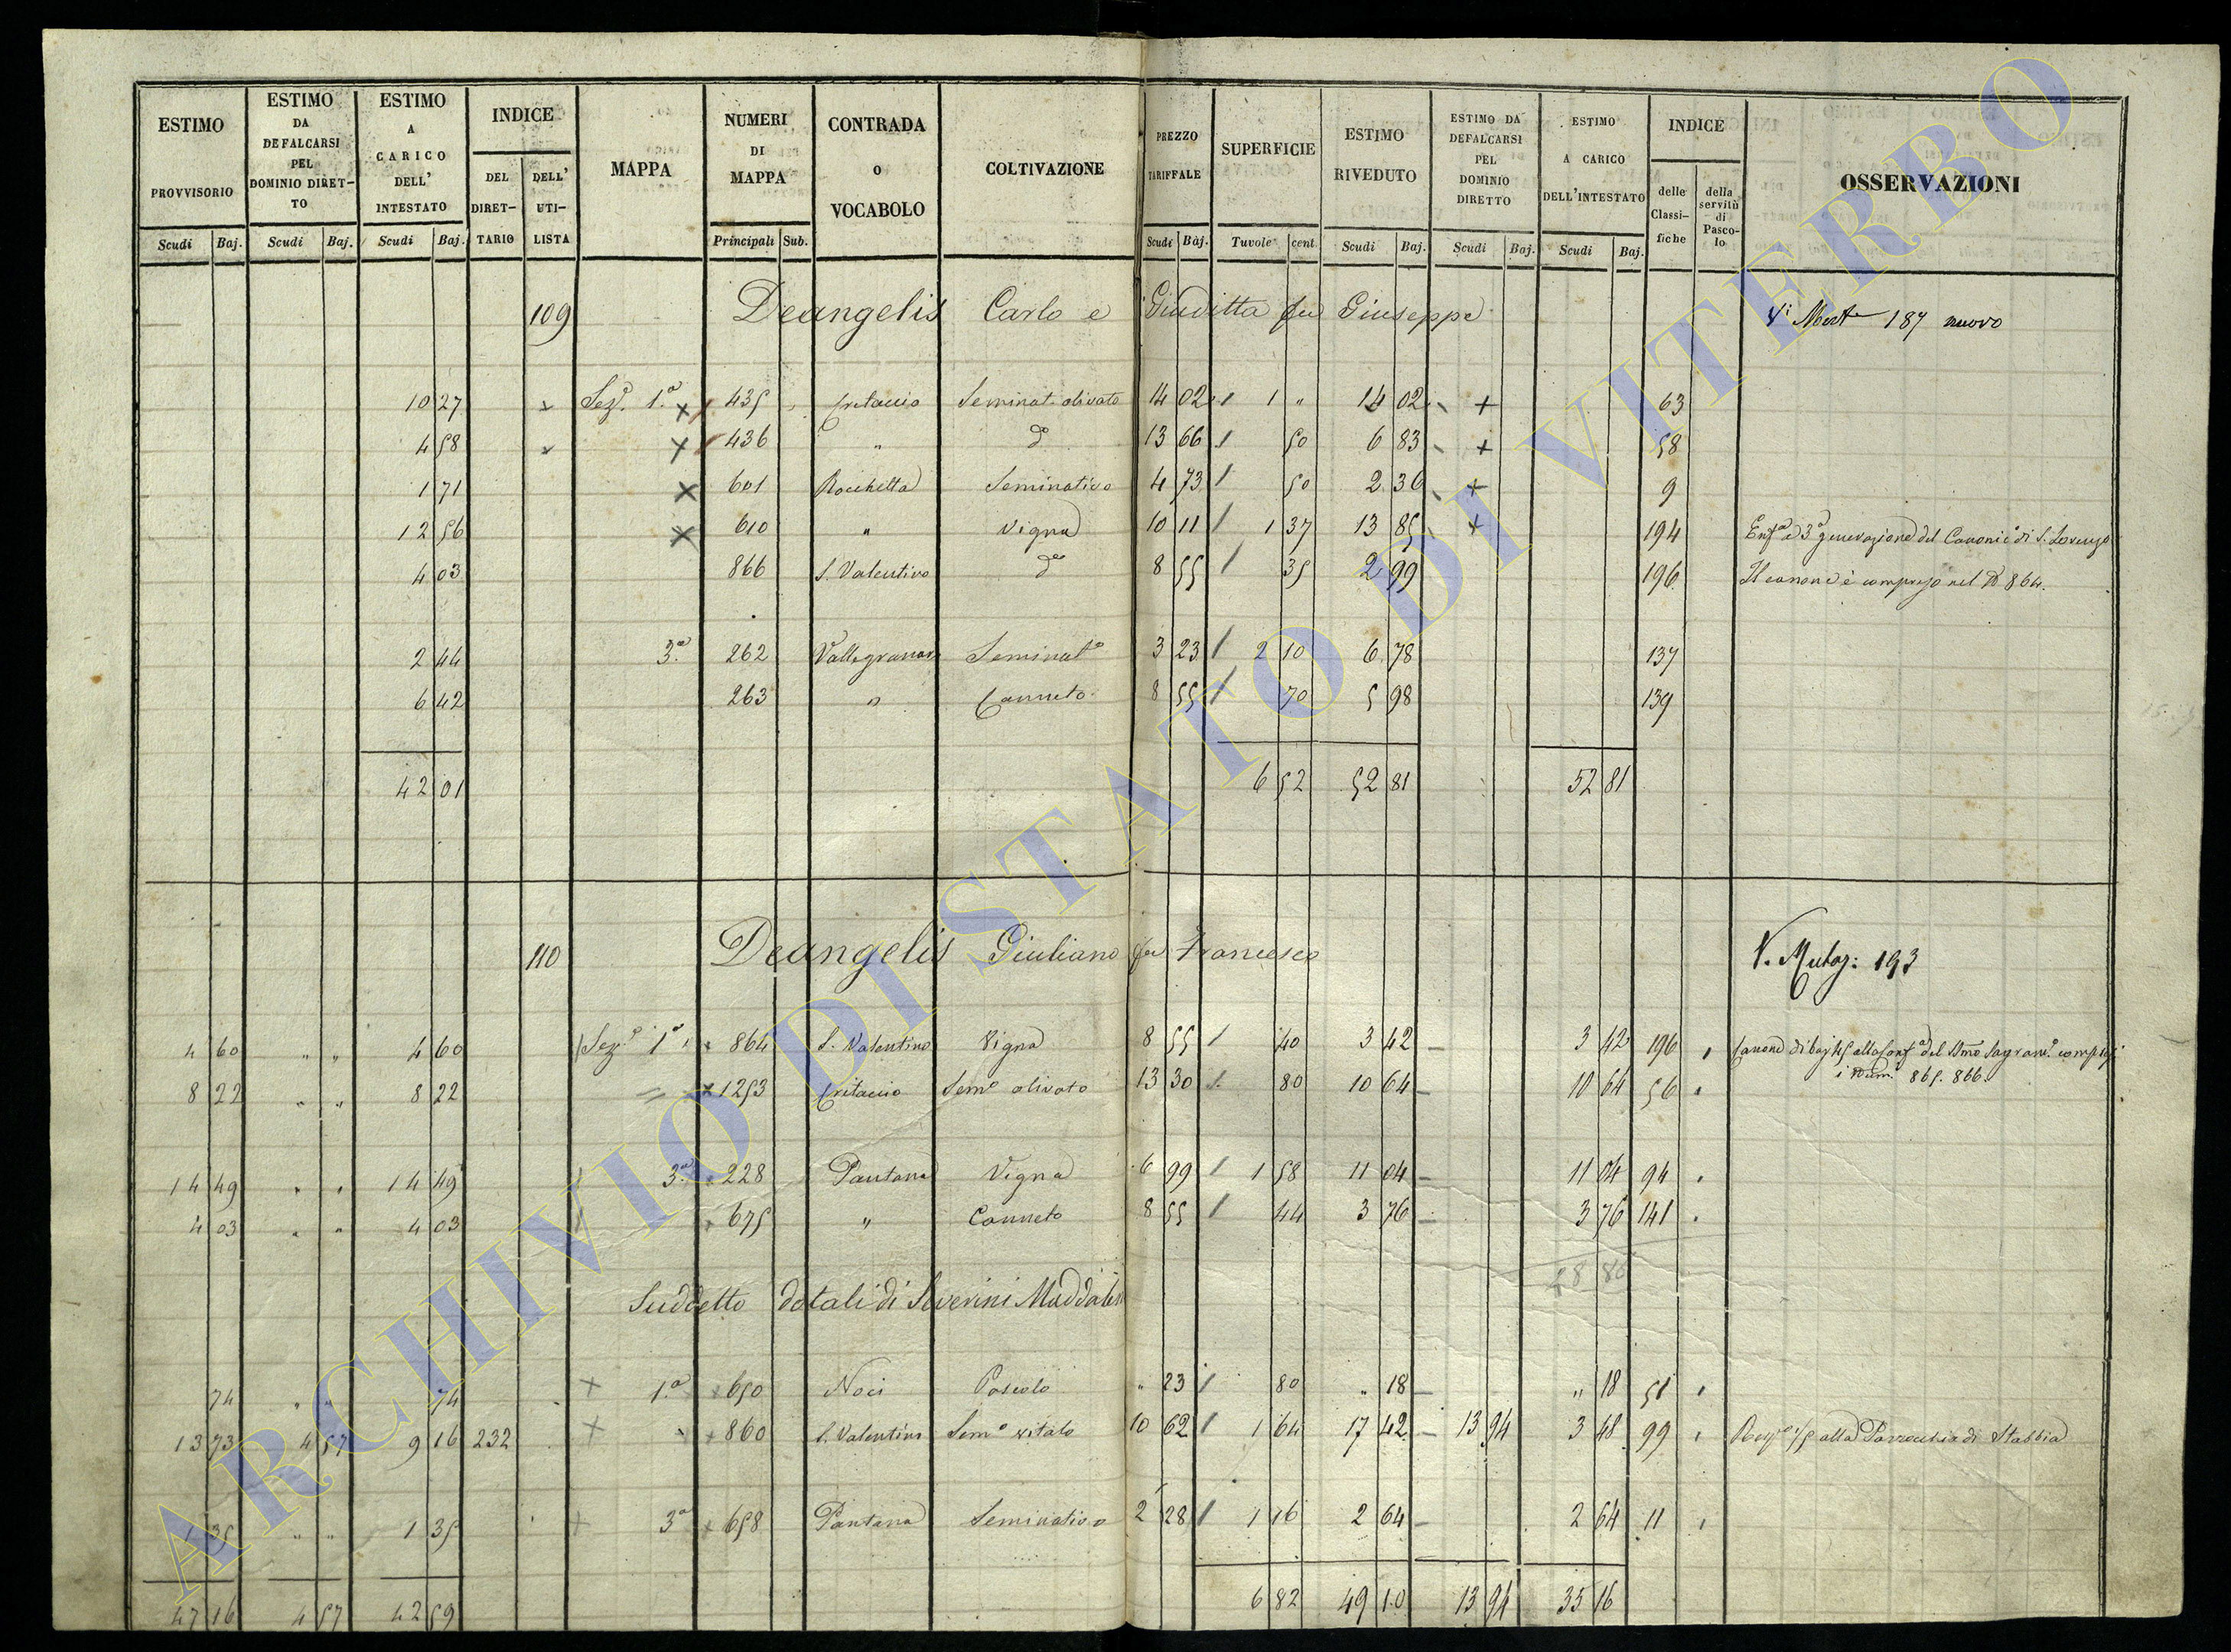 ESTIMO PROVVISORIO | ESTIMO DA DEFALCARSI PEL DOMINIO DIRET-TO | ESTIMO A CARICO DELL' INTESTATO | INDICE | MAPPA | NUMERI DI MAPPA | CONTRADA O VOCABOLO | COLTIVAZIONE | PREZZO TARIFFALE | SUPERFICIE | ESTIMO RIVEDUTO | ESTIMO DA DEFALCARSI PEL DOMINIO DIRETTO | ESTIMO A CARICO DELL'INTESTATO | INDICE | OSSERVAZIONI
DEL DIRET-TARIO | DELL' UTI-LISTA | delle Classi-fiche | della servitù di Pasco-lo
Scudi Baj. | Scudi Baj. | Scudi Baj. | Principali Sub. | Scudi Baj. | Tavole cent. | Scudi Baj. | Scudi Baj. | Scudi Baj.
109 Deangelis Carlo e Giuditta fu Giuseppe 187 nuovo
10 27 Sez.e 1.a x 435 Critaccio Seminat. olivato 14 02 1 " 14 02 + 63
4 58 x 436 " do 13 66 50 6 83 + 58
1 71 x 601 Rocchetta Seminativo 4 73 50 2 36 + 9
12 56 x 610 " Vigna 10 11 1 37 13 85 + 194 Enf.a a 3.a generazione del Canonici di S. Lorenzo
4 03 866 S. Valentino do 8 55 35 2 99 196 Il canone è compreso nel N 864.
2 44 3.a 262 Vallegranara Seminat.o 3 23 2 10 6 78 137
6 42 263 " Canneto 8 55 70 5 98 139
42 01 6 52 52 81 52 81
110 Deangelis Giuliano fu Francesco V. Mutaz: 193
4 60 " " 4 60 Sez.e 1.a 864 S. Valentino Vigna 8 55 40 3 42 3 42 196 Canone di baj 45 alla Conf.a del SSmo Sagram.o compresi
i Num. 865. 866.
8 22 " " 8 22 1253 Critaccio Sem.o olivato 13 30 80 10 64 10 64 56
14 49 " " 14 49 3.a 228 Pantana Vigna 6 99 1 58 11 04 11 04 94
4 03 " " 4 03 675 " Canneto 8 55 44 3 76 3 76 141
28 86
Suddetto dotali di Severini Maddalena
74 " " 74 x 1.a 650 Noci Pascolo " 23 80 " 18 " 18 51
13 73 4 57 9 16 232 x " 860 S. Valentino Sem.o vitato 10 62 1 64 17 42 13 94 3 48 99 alla Parrocchia di Stabbia
1 35 " " 1 35 3.a 658 Pantana Seminativo 2 28 1 16 2 64 2 64 11
47 16 4 57 42 59 6 82 49 10 13 94 35 16
ARCHIVIO DI STATO DI VITERBO